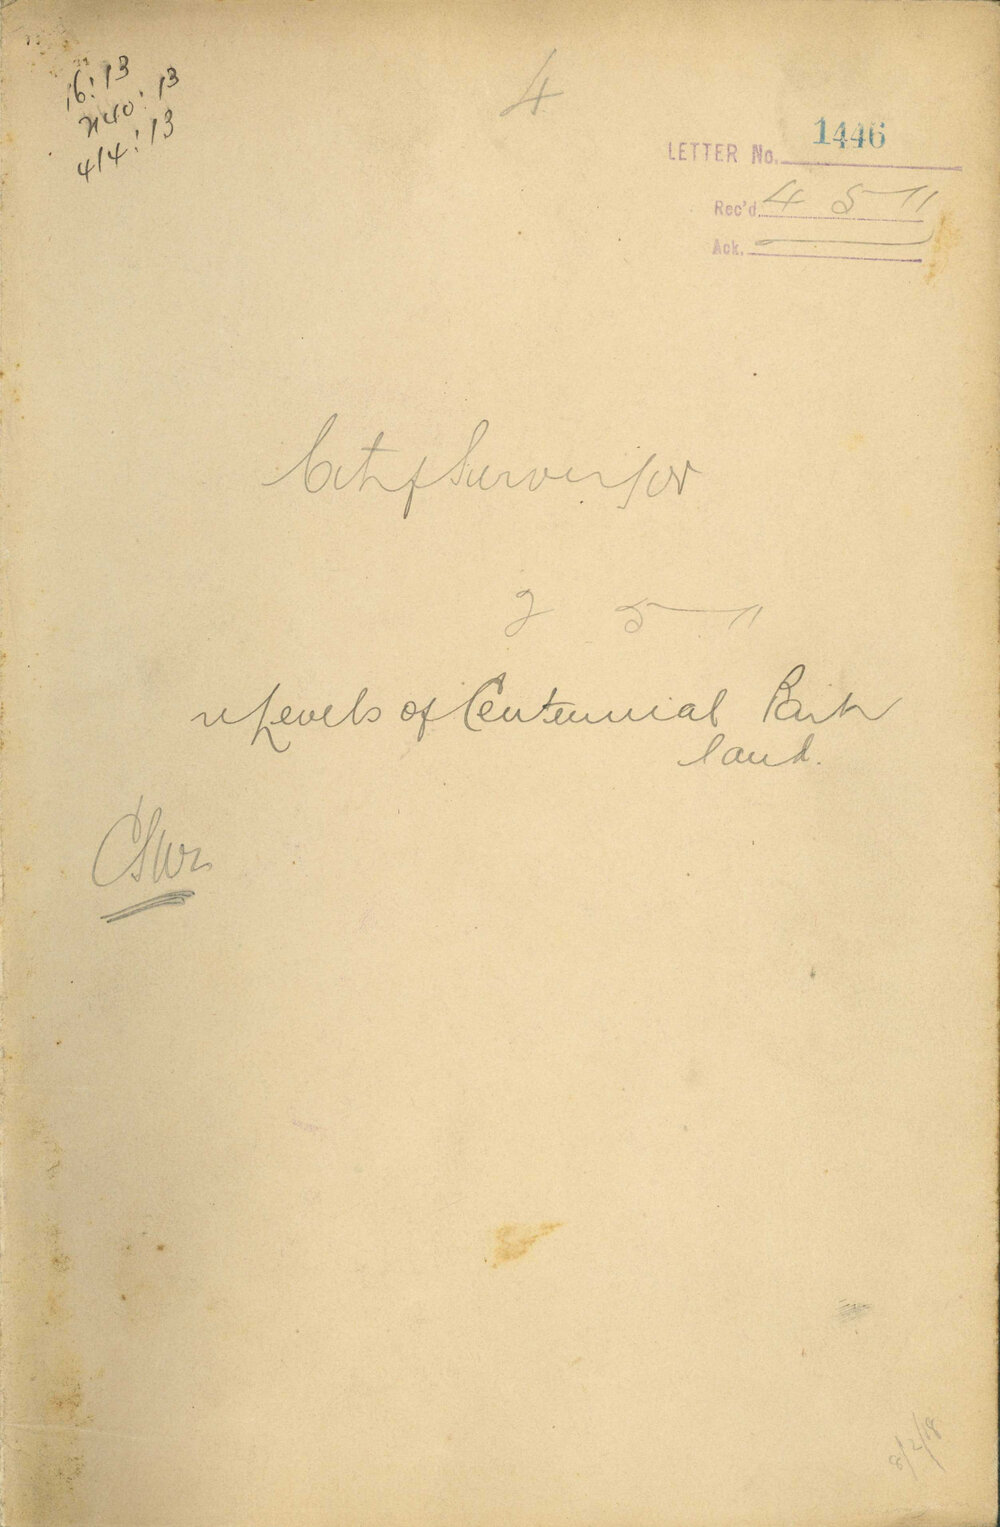 16:13
2140:13
414:13
4
LETTER No. 1446
Rec'd. 4 5 11
Ack.
City Surveyor
2 5 11
re Levels of Centennial Park
land.
8/2/18